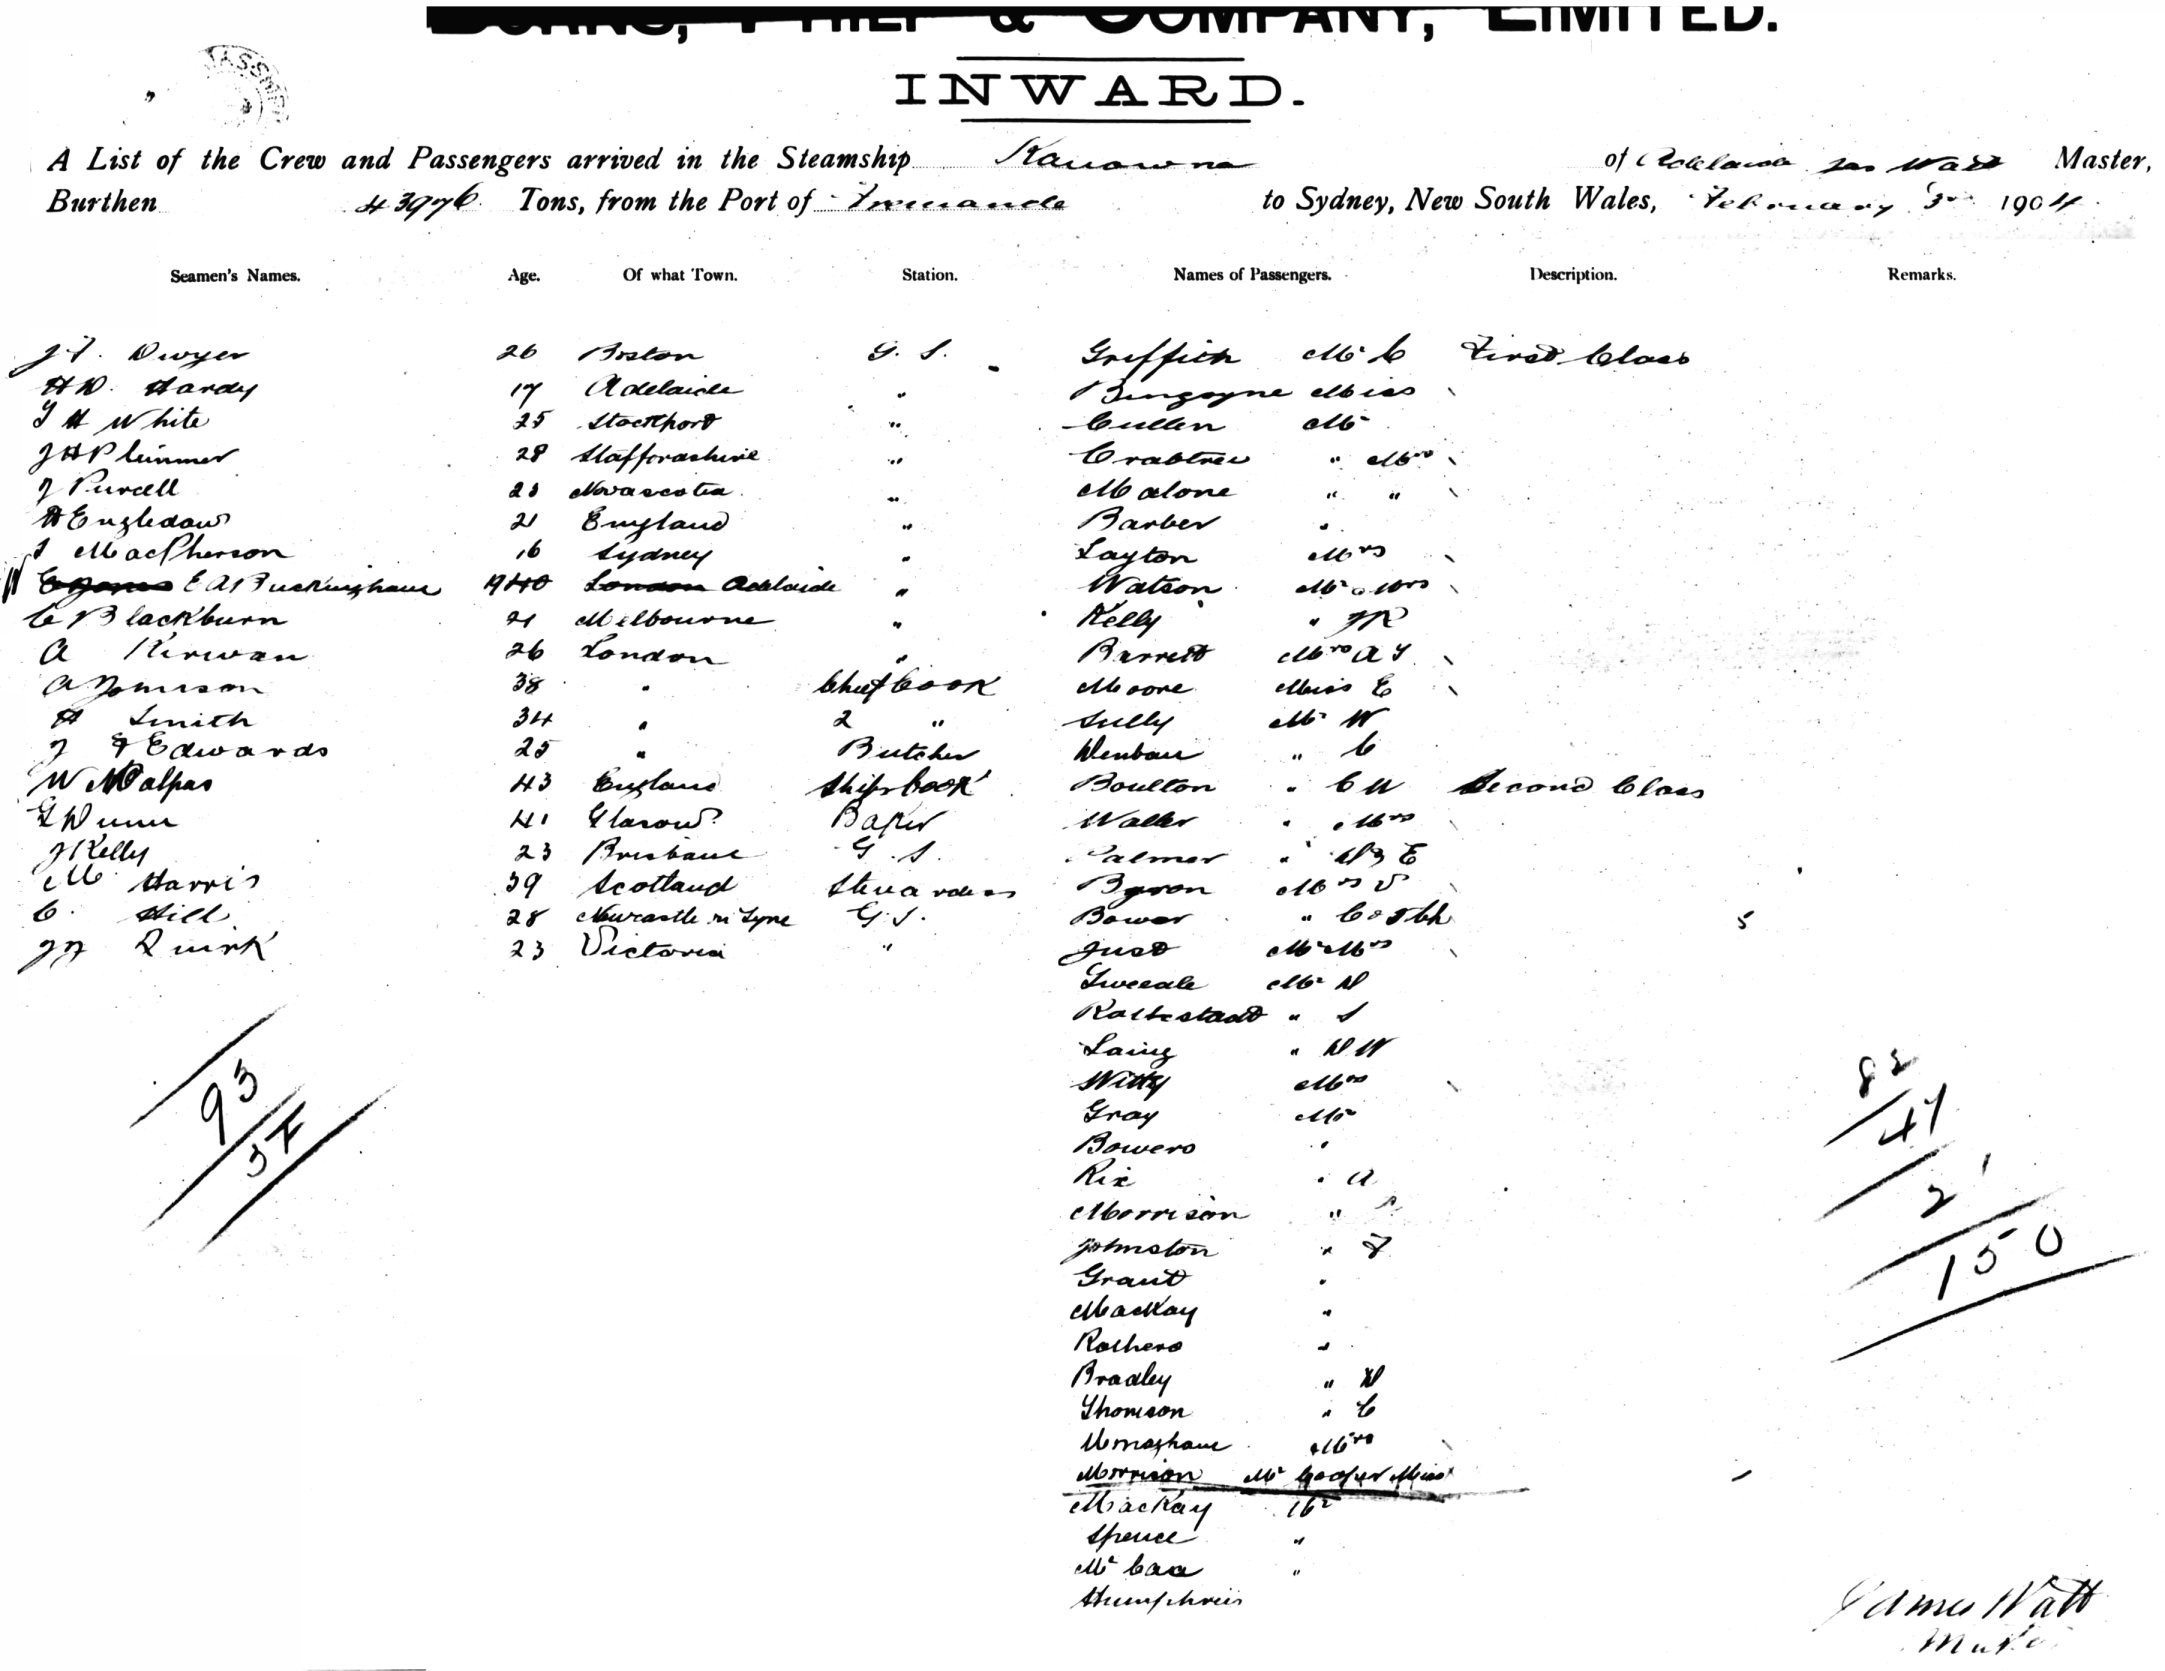 BURNS, PHILP & COMPANY, LIMITED.
INWARD.
A List of the Crew and Passengers arrived in the Steamship Kanowna of Adelaide Jas Watt Master,
Burthen 4 3976 Tons, from the Port of Fremantle to Sydney, New South Wales, February 3rd 1904
Seamen's Names. Age. Of what Town. Station. Names of Passengers. Description. Remarks.
J F. Dwyer 26 Boston G. S. Griffith Mr C First Class
H D. Hardy 17 Adelaide " Burgoyne Miss
T H White 25 Stockport " Cullen Mr
J H Plimmer 28 Staffordshire " Crabtree " Mrs
J Purcell 23 Novascotia " Malone " "
H Engledow 21 England " Barber "
J MacPherson 16 Sydney " Layton Mrs
E A Buckingham 19 London Adelaide " Watson Mr & Mrs
C Blackburn 21 Melbourne " Kelly " J R
A Kirwan 26 London " Barrett Mrs A T
A Jamieson 38 " Chief Cook Moore Miss E
H Smith 34 " 2 " Sully Mr W
J F Edwards 25 " Butcher Denbau " C
W McAlpas 43 England Ships Cook Boulton " C W Second Class
G Dunn 41 Glasow Baker Waller " Mrs
J Kelly 23 Brisbane G. S. Palmer " E
M Harris 39 Scotland Stewardess Byron Mrs V
C. Hill 28 Newcastle on Tyne G. S. Bower " C & 5 Ch 5
J J Quirk 23 Victoria " Just Mr Mrs
Tweedle Mr D
" S
Laing " D W
Witty Mrs
Gray Mr
Bowers "
Rix " A
Morrison "
Johnston " F
Grant "
MacKay "
Rothero "
Bradley " D
Thomson " C
Mrs
Morrison Mr Cooper Miss
MacKay Mr
Spence "
McCaa "
Humphries
93
37
82
47
21
150
James Watt
Master